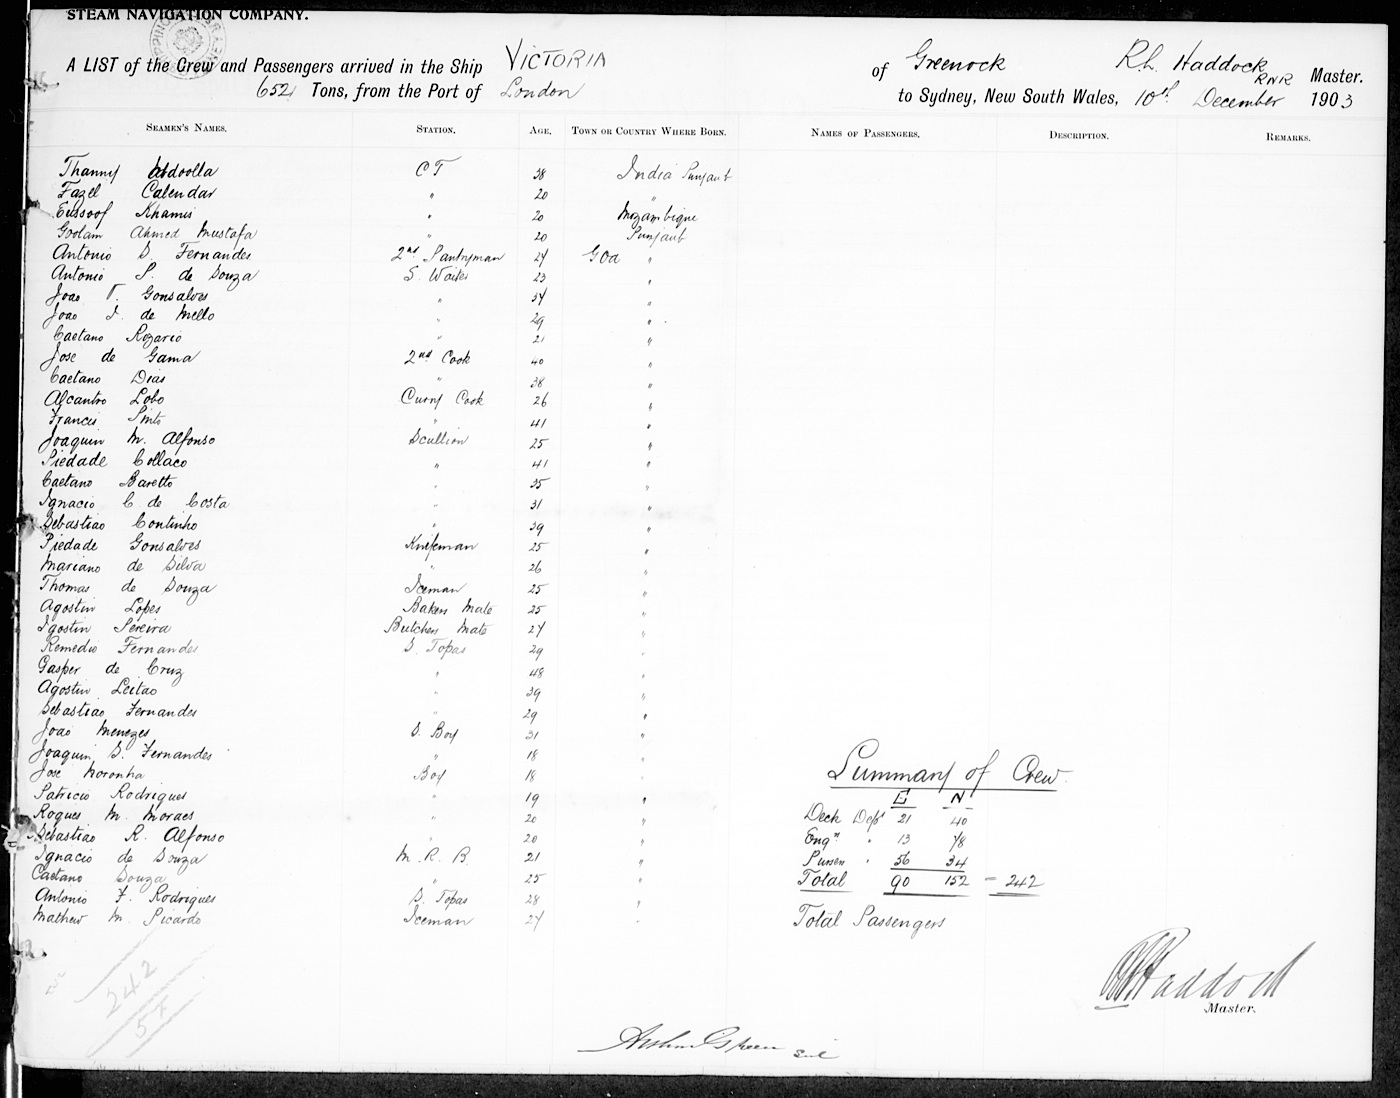 STEAM NAVIGATION COMPANY.
A LIST of the Crew and Passengers arrived in the Ship VICTORIA of Greenock R.L. Haddock RNR Master.
652 Tons, from the Port of London to Sydney, New South Wales, 10th December 1903
SEAMEN'S NAMES. STATION. AGE. TOWN OR COUNTRY WHERE BORN. NAMES OF PASSENGERS. DESCRIPTION. REMARKS.
Thanny Abdoolla C T 38 India Punjaub
Fazel Calendar " 20 "
Eussoof Khamis " 20 Mozambique
Goolam Ahmed Mustafa " 20 Punjaub
Antonio S. Fernandes 2nd Pantryman 24 Goa "
Antonio P. de Souza S. Waiter 23 "
Joao T. Gonsalves " 34 "
Joao J. de Mello " 29 "
Caetano Rozario " 21 "
Jose de Gama 2nd Cook 40 "
Caetano Dias " 38 "
Alcantro Lobo Curry Cook 26 "
Francis Pinto " 41 "
Joaquin M. Alfonso Scullion 25 "
Piedade Collaco " 41 "
Caetano Baretto " 35 "
Ignacio C de Costa " 31 "
Sebastiao Continho " 39 "
Piedade Gonsalves Knifeman 25 "
Mariano de Silva " 26 "
Thomas de Souza Iceman 25 "
Agostin Lopes Bakers Mate 25 "
Igostin Pereira Butchers Mate 24 "
Remedio Fernandes S. Topas 29 "
Gasper de Cruz " 48 "
Agostin Leitao " 39 "
Sebastiao Fernandes " 29 "
Joao Menezes S. Boy 31 "
Joaquin S. Fernandes " 18 "
Jose Noronha Boy 18 "
Patricio Rodrigues " 19 "
Roques M. Moraes " 20 "
Sebastiao R. Alfonso " 20 "
Ignacio de Souza M. R. B. 21 "
Caetano Souza " 25 "
Antonio F. Rodrigues S. Topas 28 "
Mathew M. Picardo Iceman 24 "
Summary of Crew
E N
Deck Dept 21 40
Engn " 13 78
Pursers " 56 34
Total 90 152 = 242
Total Passengers
242
57
RHaddock
Master.